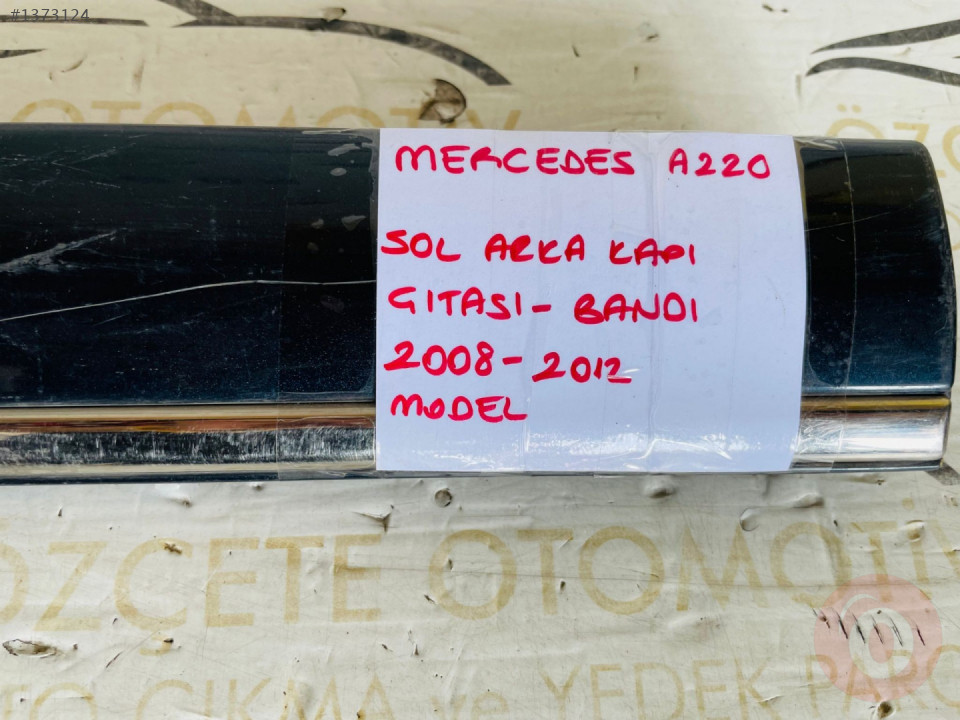 #1373124
OTOMOTİV
ÖZÇ
MERCEDES A220
SOL ARKA KAPI
GITASI- BANDI
2008-2012
MODEL
ÖZÇETE OTOMOTİV
OTO ÇIKMA ve YEDEK PARÇ